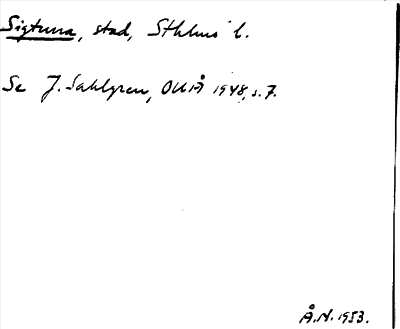 Sigtuna, stad, Sthlms l.
Se J. Sahlgren, OUÅ 1948, s. 7.
Å.N. 1953.